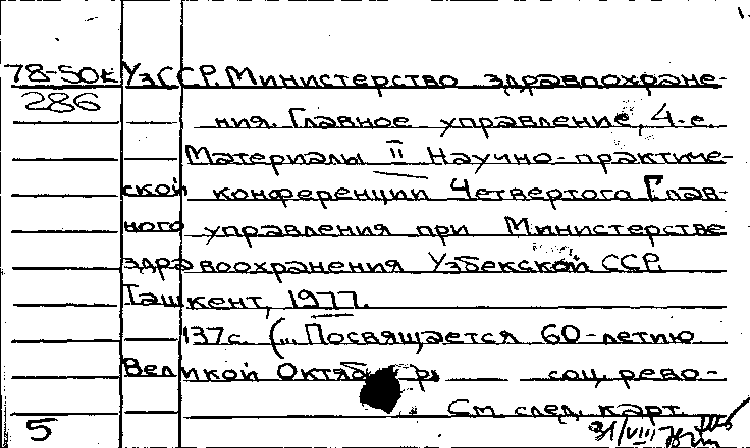 78-50к УзССР. Министерство здравоохране-
286
ния. Главное управление, 4-е.
Материалы II Научно-практиче-
ской конференции Четвертого Глав-
ного управления при Министерстве
здравоохранения Узбекской ССР.
Ташкент, 1977.
137с. (... Посвящается 60-летию
Великой Октябр соц. рево-
См. след. карт.
5 31/VIII